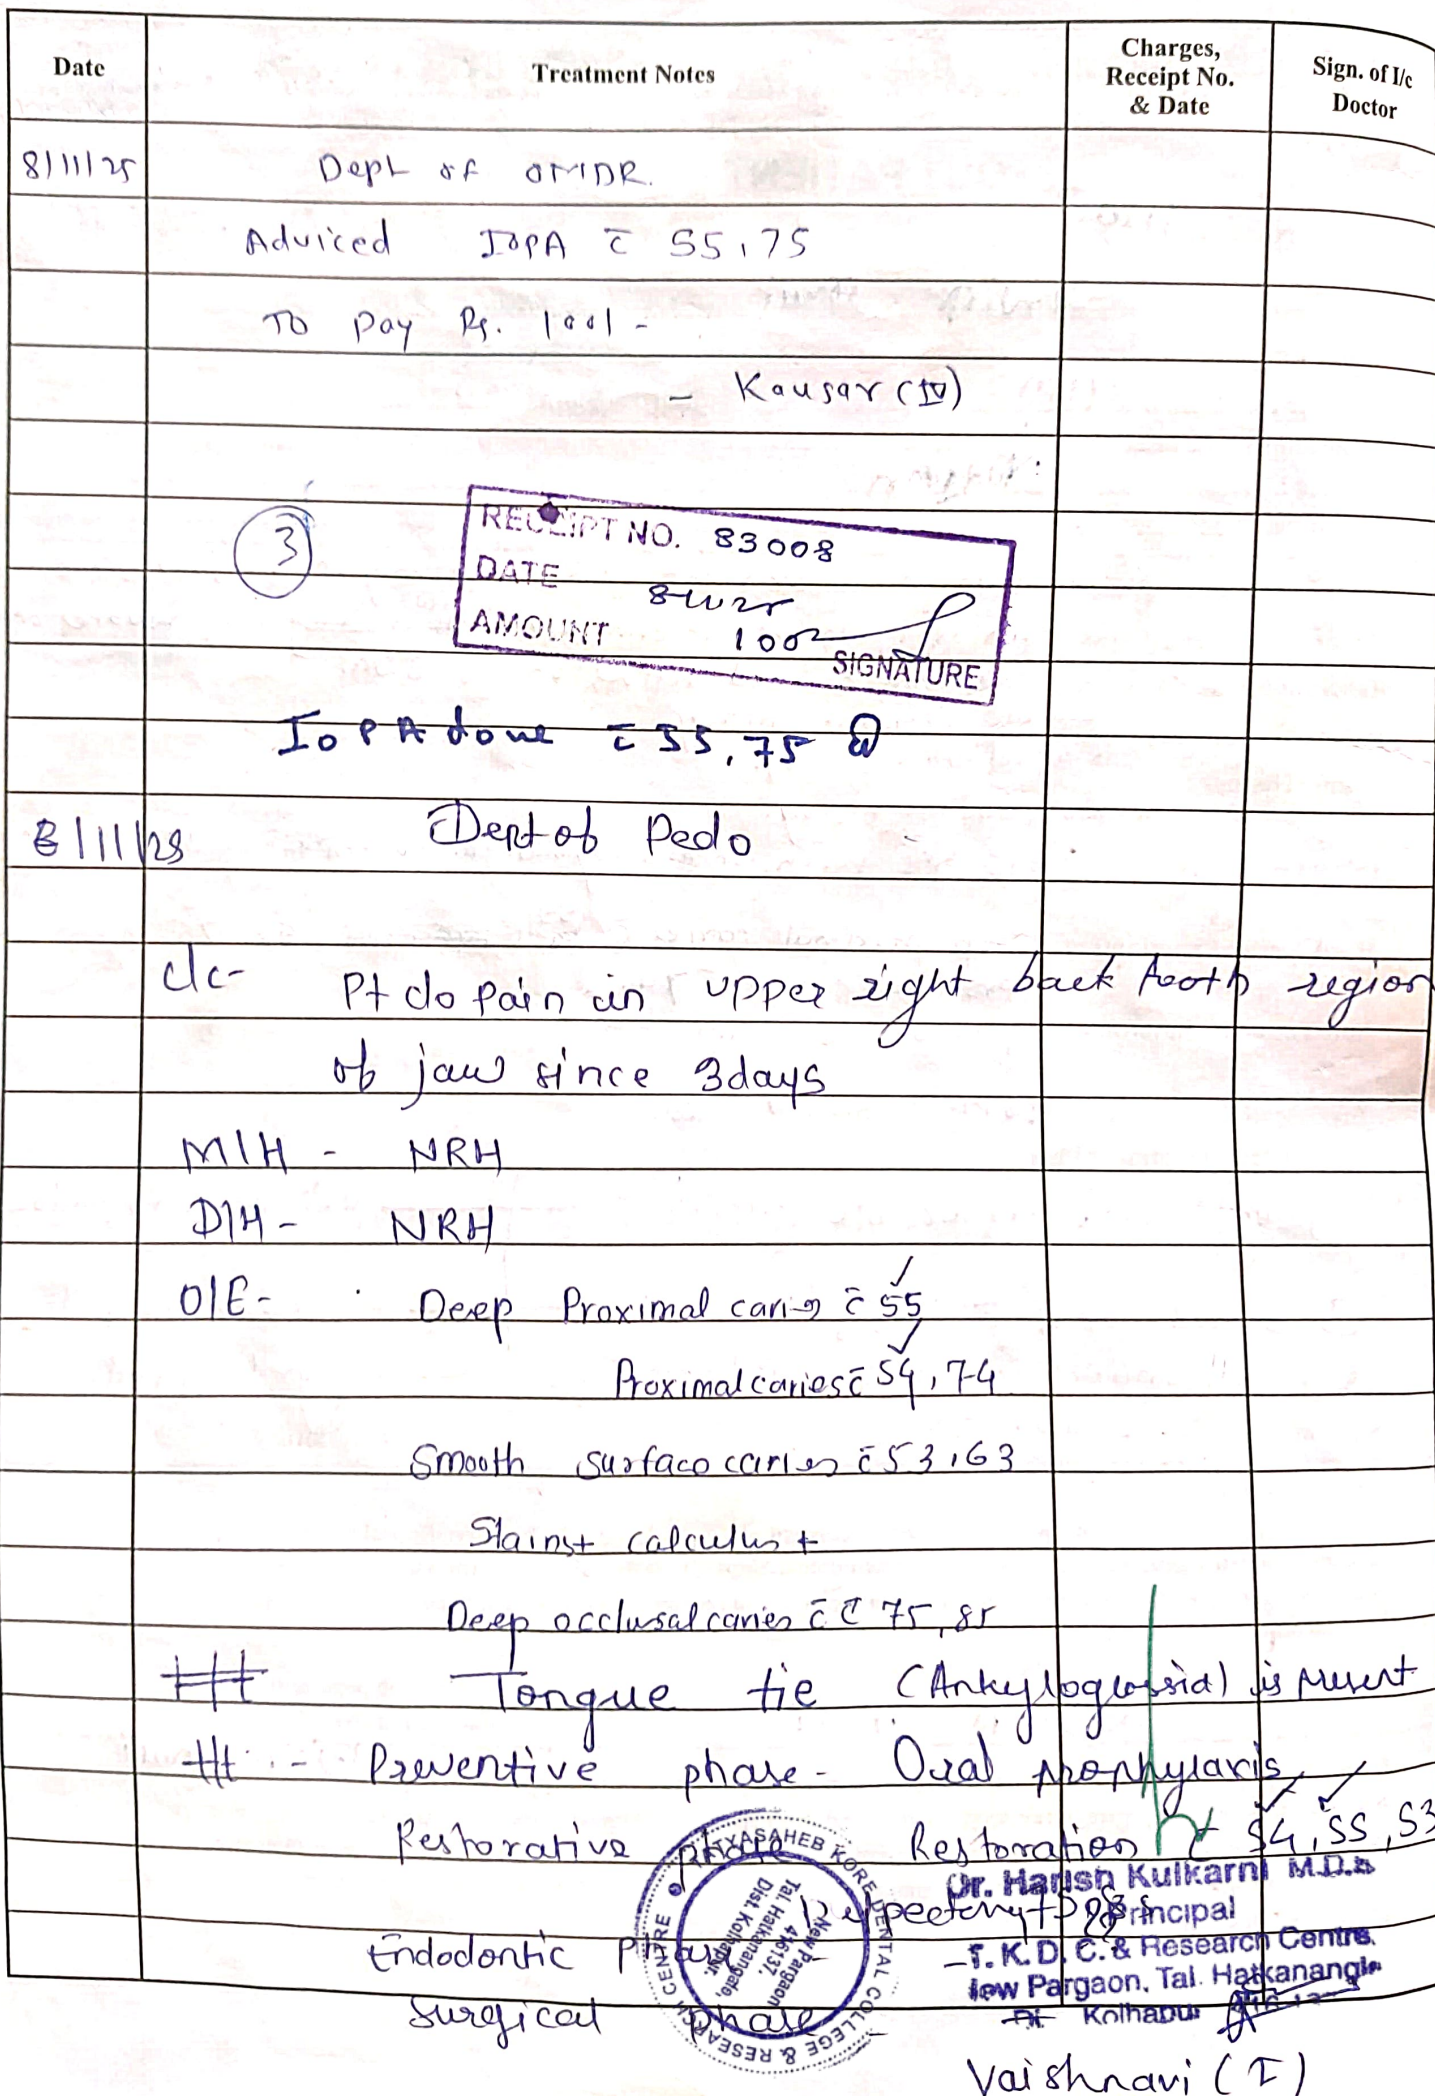 Date Treatment Notes Charges, Receipt No. & Date Sign. of I/c Doctor
8/11/25 Dept of OMDR.
Adviced IOPA c̄ 55,75
To pay Rs. 100/-
- Kausar (IV)
3
RECEIPT NO. 83008
DATE 8/11/25
AMOUNT 100
SIGNATURE
IOPA done c̄ 55, 75
8/11/25 Dept of Pedo
c/c- Pt c/o pain in upper right back tooth region
of jaw since 3days
M/H - NRH
D/H - NRH
O/E- Deep Proximal caries c̄ 55
Proximal caries c̄ 54, 74
Smooth surface caries c̄ 53, 63
Stains+ calculus +
Deep occlusal caries c̄ c̄ 75, 85
Tongue tie (Ankyloglossia) is present
Preventive phase - Oral prophylaxis
Restorative phase Restoration 54, 55, 53
Endodontic Phase
Surgical phase -
Vaishnavi (I)
TATYASAHEB KORE DENTAL COLLEGE & RESEARCH CENTRE
New Pargaon
416137,
Tal. Hatkanangale,
Dist. Kolhapur.
Dr. Harish Kulkarni M.D.S
Principal
T. K. D. C. & Research Centre.
New Pargaon. Tal. Hatkanangle
Kolhapur